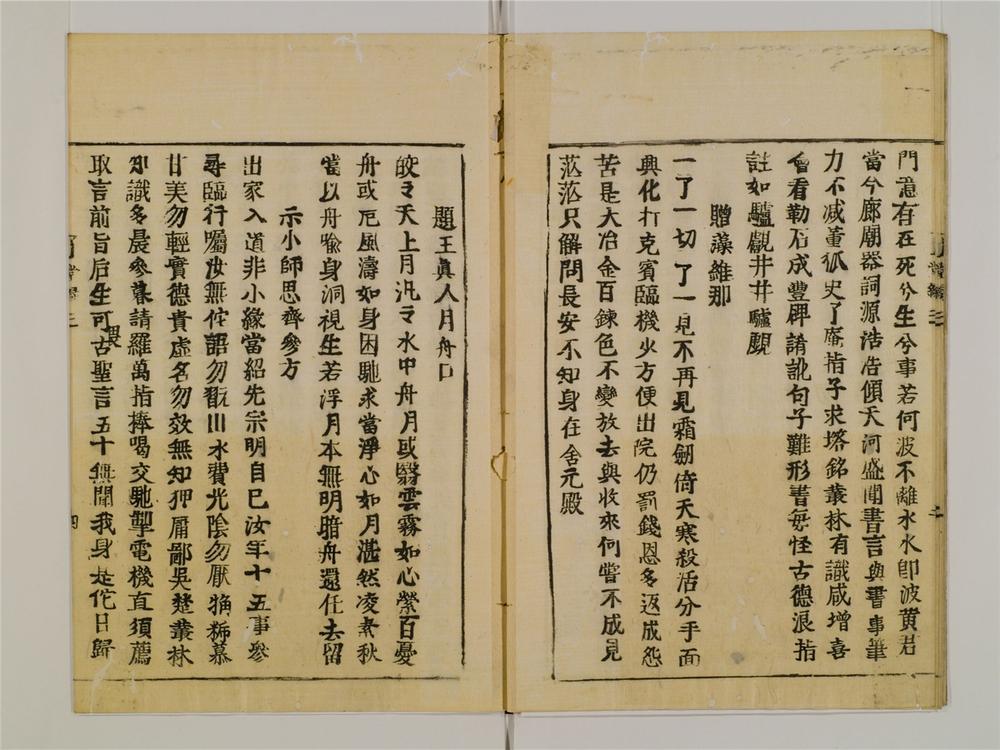 門意有在死兮生兮事若何波不離水水即波黃君
當今廊廟器詞源浩浩傾天河盛聞書言與書事筆
力不减董狐史了庵指子求塔銘叢林有識咸增喜
會看勒石成豐碑請訛句子難形書每怪古德浪指
註如驢覷井井驢覷
贈藻維那
一了一切了一見不再見霜劒倚天寒殺活分手面
興化打克賓臨機少方便出院仍罰錢恩多返成怨
苦是大冶金百鍊色不變放去與收來何嘗不成見
茫茫只解問長安不知身在含元殿
題王眞人月舟口
皎々天上月汎々水中舟月或翳雲霧如心縈百憂
舟或厄風濤如身困馳求當淨心如月湛然凌素秋
當以舟喻身洞視生若浮月本無明暗舟還任去留
示小師思齊參方
出家入道非小緣當紹先宗明自已汝年十五事參
尋臨行囑汝無佗語勿翫川水費光陰勿厭 慕
甘美勿輕實德貴虛名勿效無知狎屑鄙吳楚叢林
知識多晨參暮請羅萬指捧喝交馳掣電機直須薦
取言前旨后生可畏古聖言五十無聞我身是佗日歸
二
四